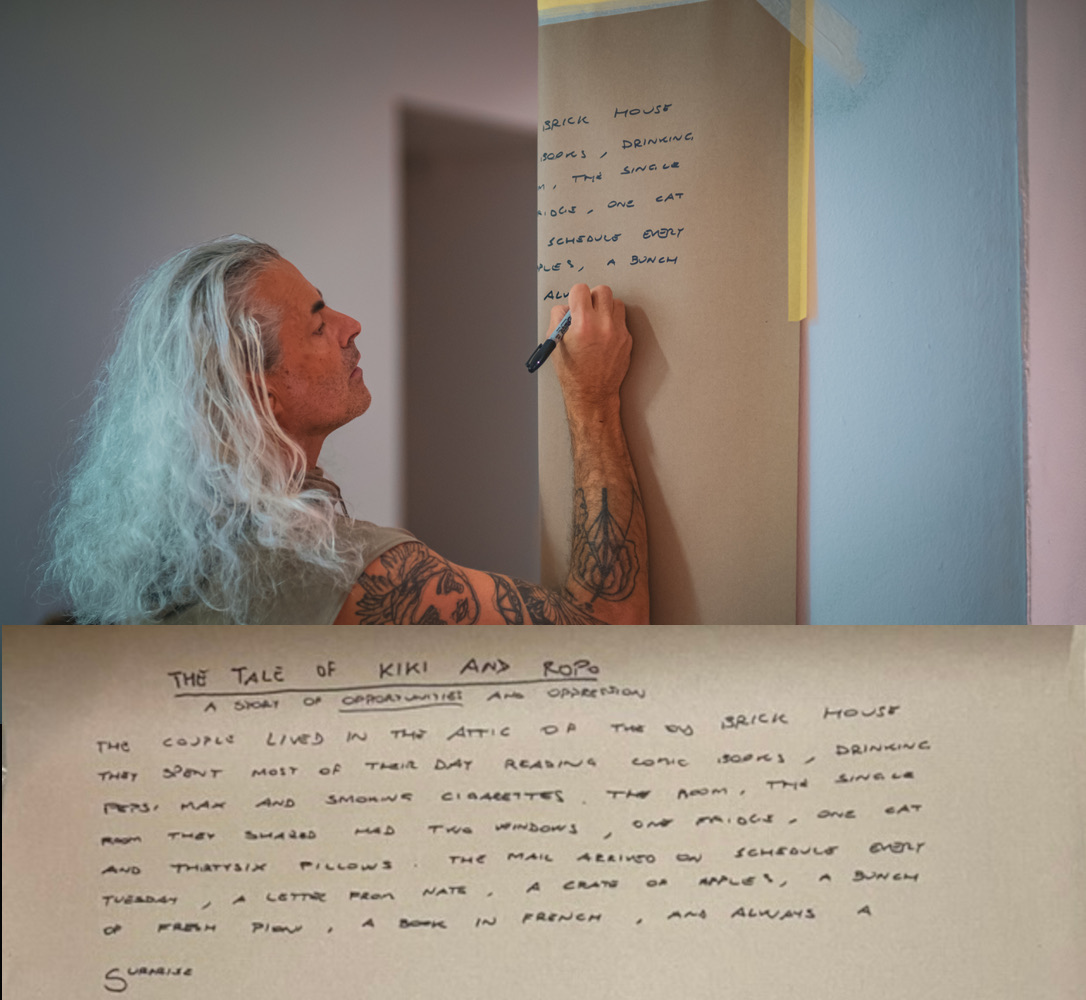 BRICK HOUSE
BOOKS, DRINKING
M, THE SINGLE
FRIDGE, ONE CAT
SCHEDULE EVERY
PLES, A BUNCH
ALW
THE TALE OF KIKI AND ROPO
A STORY OF OPPORTUNITIES AND OPPRESSION
THE COUPLE LIVED IN THE ATTIC OF THE OLD BRICK HOUSE
THEY SPENT MOST OF THEIR DAY READING COMIC BOOKS, DRINKING
PEPSI MAX AND SMOKING CIGARETTES. THE ROOM, THE SINGLE
ROOM THEY SHARED HAD TWO WINDOWS, ONE FRIDGE, ONE CAT
AND THIRTYSIX PILLOWS. THE MAIL ARRIVED ON SCHEDULE EVERY
TUESDAY, A LETTER FROM NATE, A CRATE OF APPLES, A BUNCH
OF FRESH, A BOOK IN FRENCH, AND ALWAYS A
SURPRISE